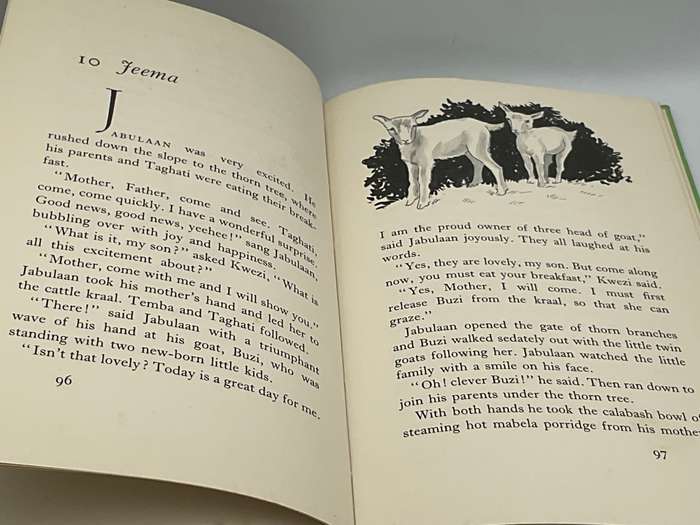 10 Jeema
JABULAAN was very excited. He
rushed down the slope to the thorn tree, where
his parents and Taghati were eating their break-
fast.
"Mother, Father, come and see. Taghati,
come, come quickly. I have a wonderful surprise.
Good news, good news, yeehee!" sang Jabulaan,
bubbling over with joy and happiness.
"What is it, my son?" asked Kwezi, "What is
all this excitement about?"
"Mother, come with me and I will show you."
Jabulaan took his mother's hand and led her to
the cattle kraal. Temba and Taghati followed.
"There!" said Jabulaan with a triumphant
wave of his hand at his goat, Buzi, who was
standing with two new-born little kids.
"Isn't that lovely? Today is a great day for me.
96
I am the proud owner of three head of goat,"
said Jabulaan joyously. They all laughed at his
words.
"Yes, they are lovely, my son. But come along
now, you must eat your breakfast," Kwezi said.
"Yes, Mother, I will come. I must first
release Buzi from the kraal, so that she can
graze."
Jabulaan opened the gate of thorn branches
and Buzi walked sedately out with the little twin
goats following her. Jabulaan watched the little
family with a smile on his face.
"Oh! clever Buzi!" he said. Then ran down to
join his parents under the thorn tree.
With both hands he took the calabash bowl of
steaming hot mabela porridge from his mothe
97